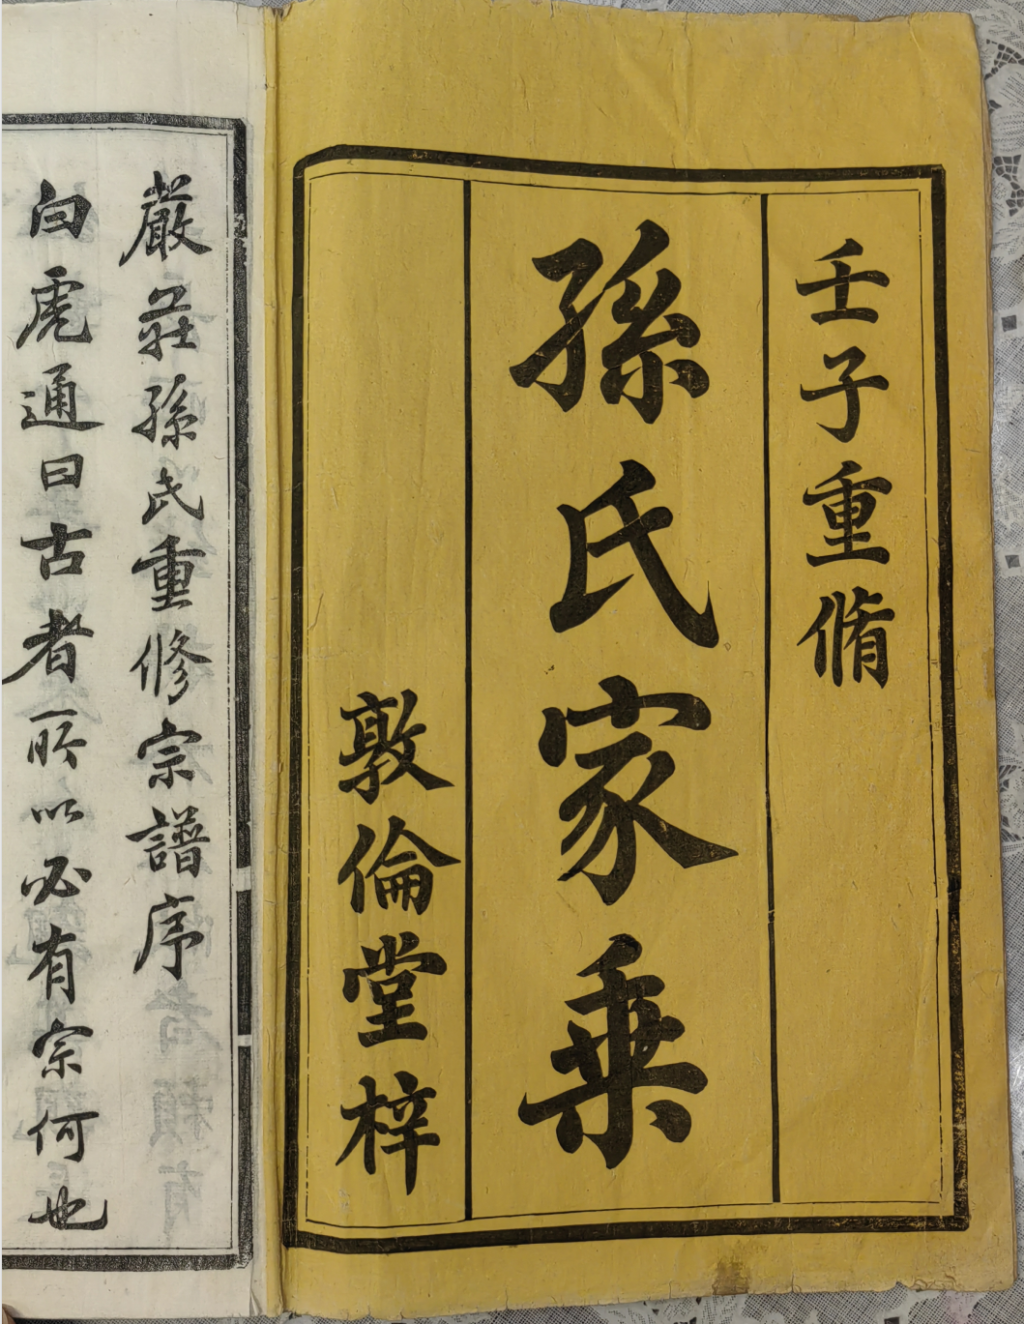 壬子重脩
孫氏家乗
敦倫堂梓
嚴莊孫氏重修宗譜序
白虎通曰古者所以必有宗何也